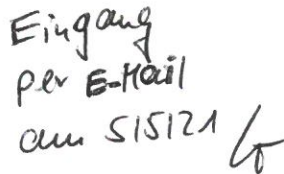 Eingang
per E-Mail
am 5/5/21